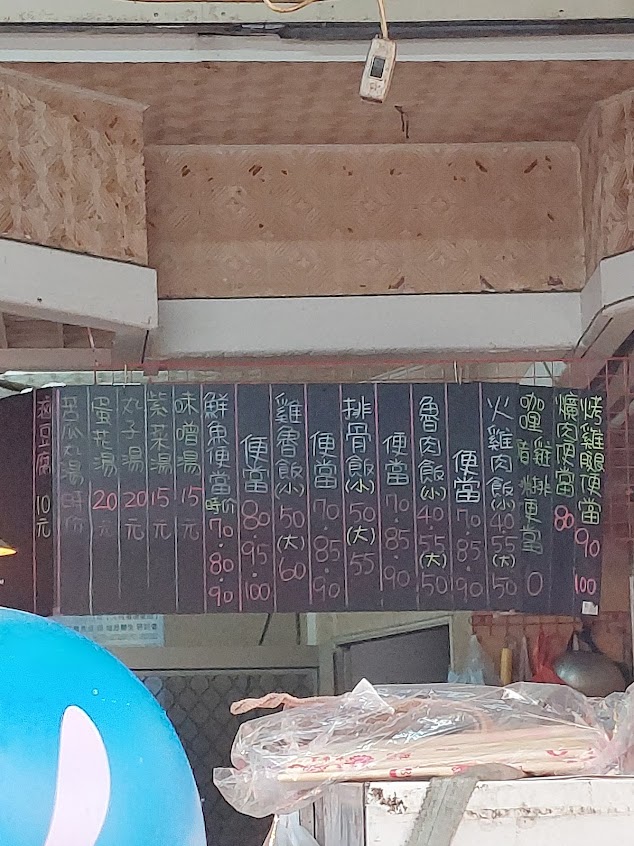 烤雞腿便當 90 100
爌肉便當 80
咖哩雞排便當 0
火雞肉飯(小)40 55 (大)50
便當 70.85.90
魯肉飯(小)40 55 (大)50
便當 70.85.90
排骨飯(小)50 (大)55
便當 70.85.90
雞魯飯(小)50 (大)60
便當 80.95.100
鮮魚便當 時价 70.80.90
味噌湯 15元
紫菜湯 15元
丸子湯 20元
蛋花湯 20元
苦瓜丸湯 時价
豆腐 10元